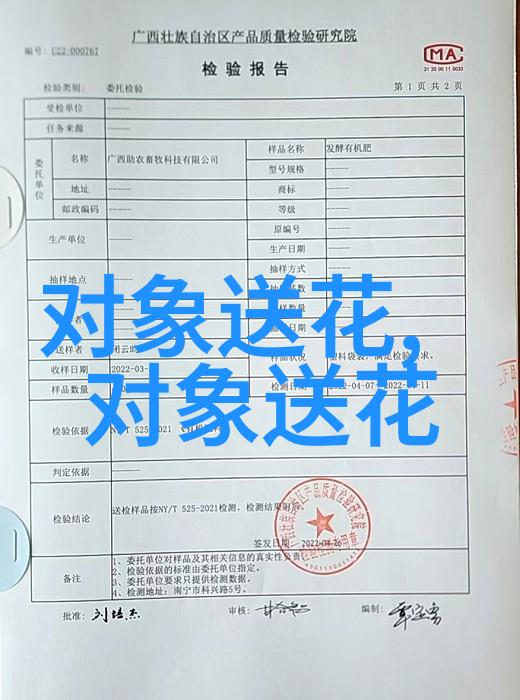 广西壮族自治区产品质量检验研究院
编号: U22-000767
检验报告
CMA
21 20 00 11 0033
检验类别: 委托检验
第 1 页 共 2 页
受检单位 ——
任务来源 ——
委托单位
名称 广西助农畜牧科技有限公司 样品名称 发酵有机肥
型号规格 ——
地址 —— 商标 ——
邮政编码 —— 等级 ——
生产单位 —— 原编号 ——
生产日期 ——
抽样地点 抽样方式 ——
对象送花,
送样者 样品状况 塑料袋装,满足检验要求。
收样日期 2022-03-
对象送花
样品数量 检测日期 2022-04-07
检验依据 NY/T 525-2021
判定依据 ——
检验结论 送检样品按NY/T 525-2021检测,检测结果附
签发日期: 2022-04-26
备注
1、委托单位对样品及其相关信息的真实性负责。
2、检验依据的标准由委托单位指定。
3、委托单位要求只提供检测数据。
4、检测地址:南宁市科兴路5号。
批准: 审核: 编制: